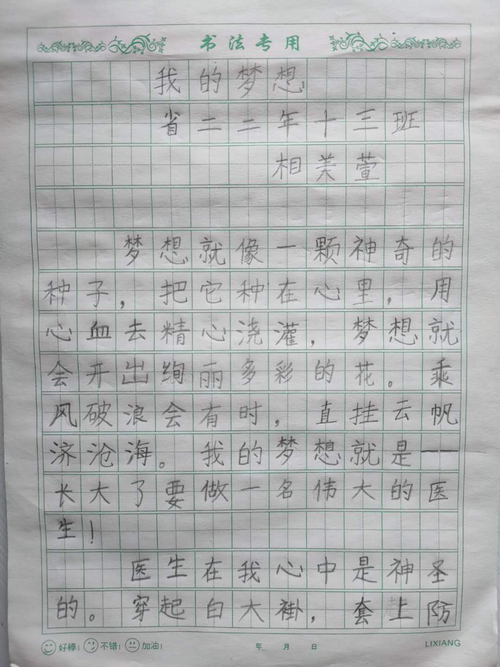 书法专用
我的梦想
省二二年十三班
相美萱
梦想就像一颗神奇的
种子，把它种在心里，用
心血去精心浇灌，梦想就
会开出绚丽多彩的花。乘
风破浪会有时，直挂云帆
济沧海。我的梦想就是——
长大了要做一名伟大的医
生！
医生在我心中是神圣
的。穿起白大褂，套上防
好棒： 不错： 加油： 年 月 日 LIXIANG